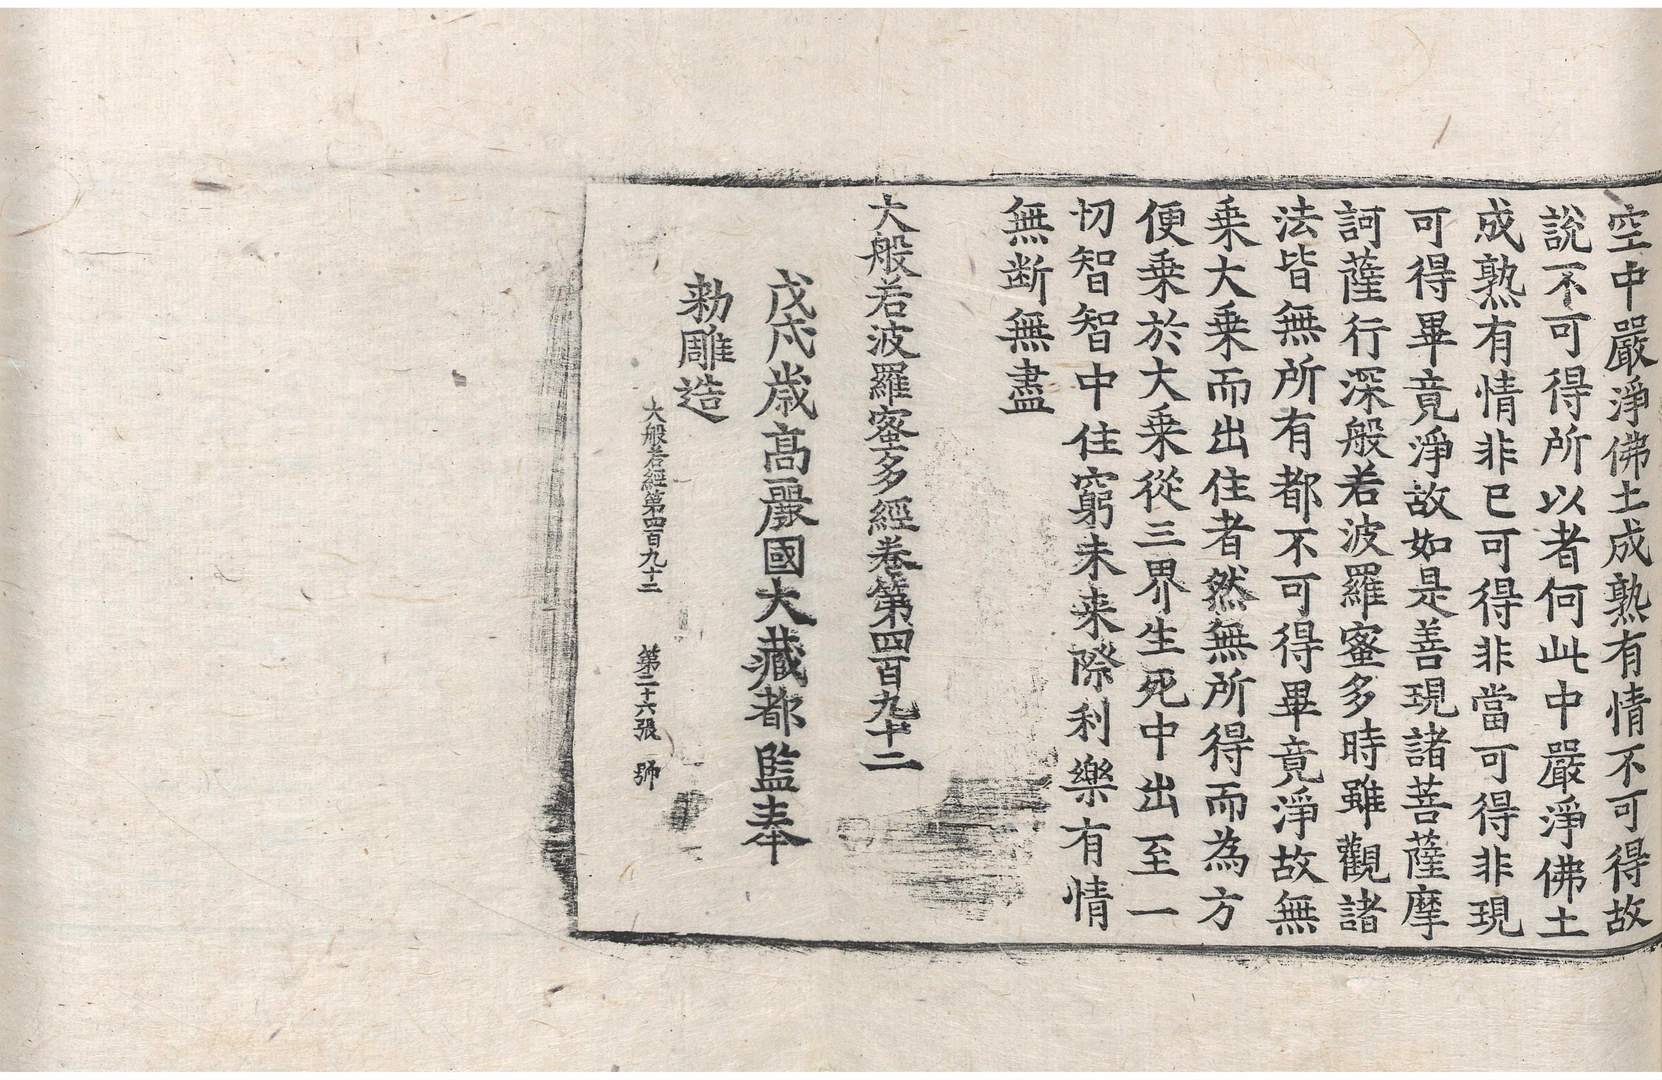 空中嚴淨佛土成熟有情不可得故
說不可得所以者何此中嚴淨佛土
成熟有情非已可得非當可得非現
可得畢竟淨故如是善現諸菩薩摩
訶薩行深般若波羅蜜多時雖觀諸
法皆無所有都不可得畢竟淨故無
乗大乗而出住者然無所得而為方
便乗於大乗從三界生死中出至一
切智智中住窮未来際利樂有情
無断無盡
大般若波羅蜜多經卷第四百九十二
戊戌歲高麗國大藏都監奉
勑雕造
大般若經第四百九十二 第二十六張 號